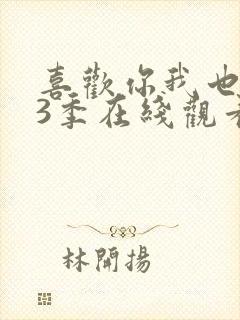 喜歡你我也
3季在綫觀
林開揚